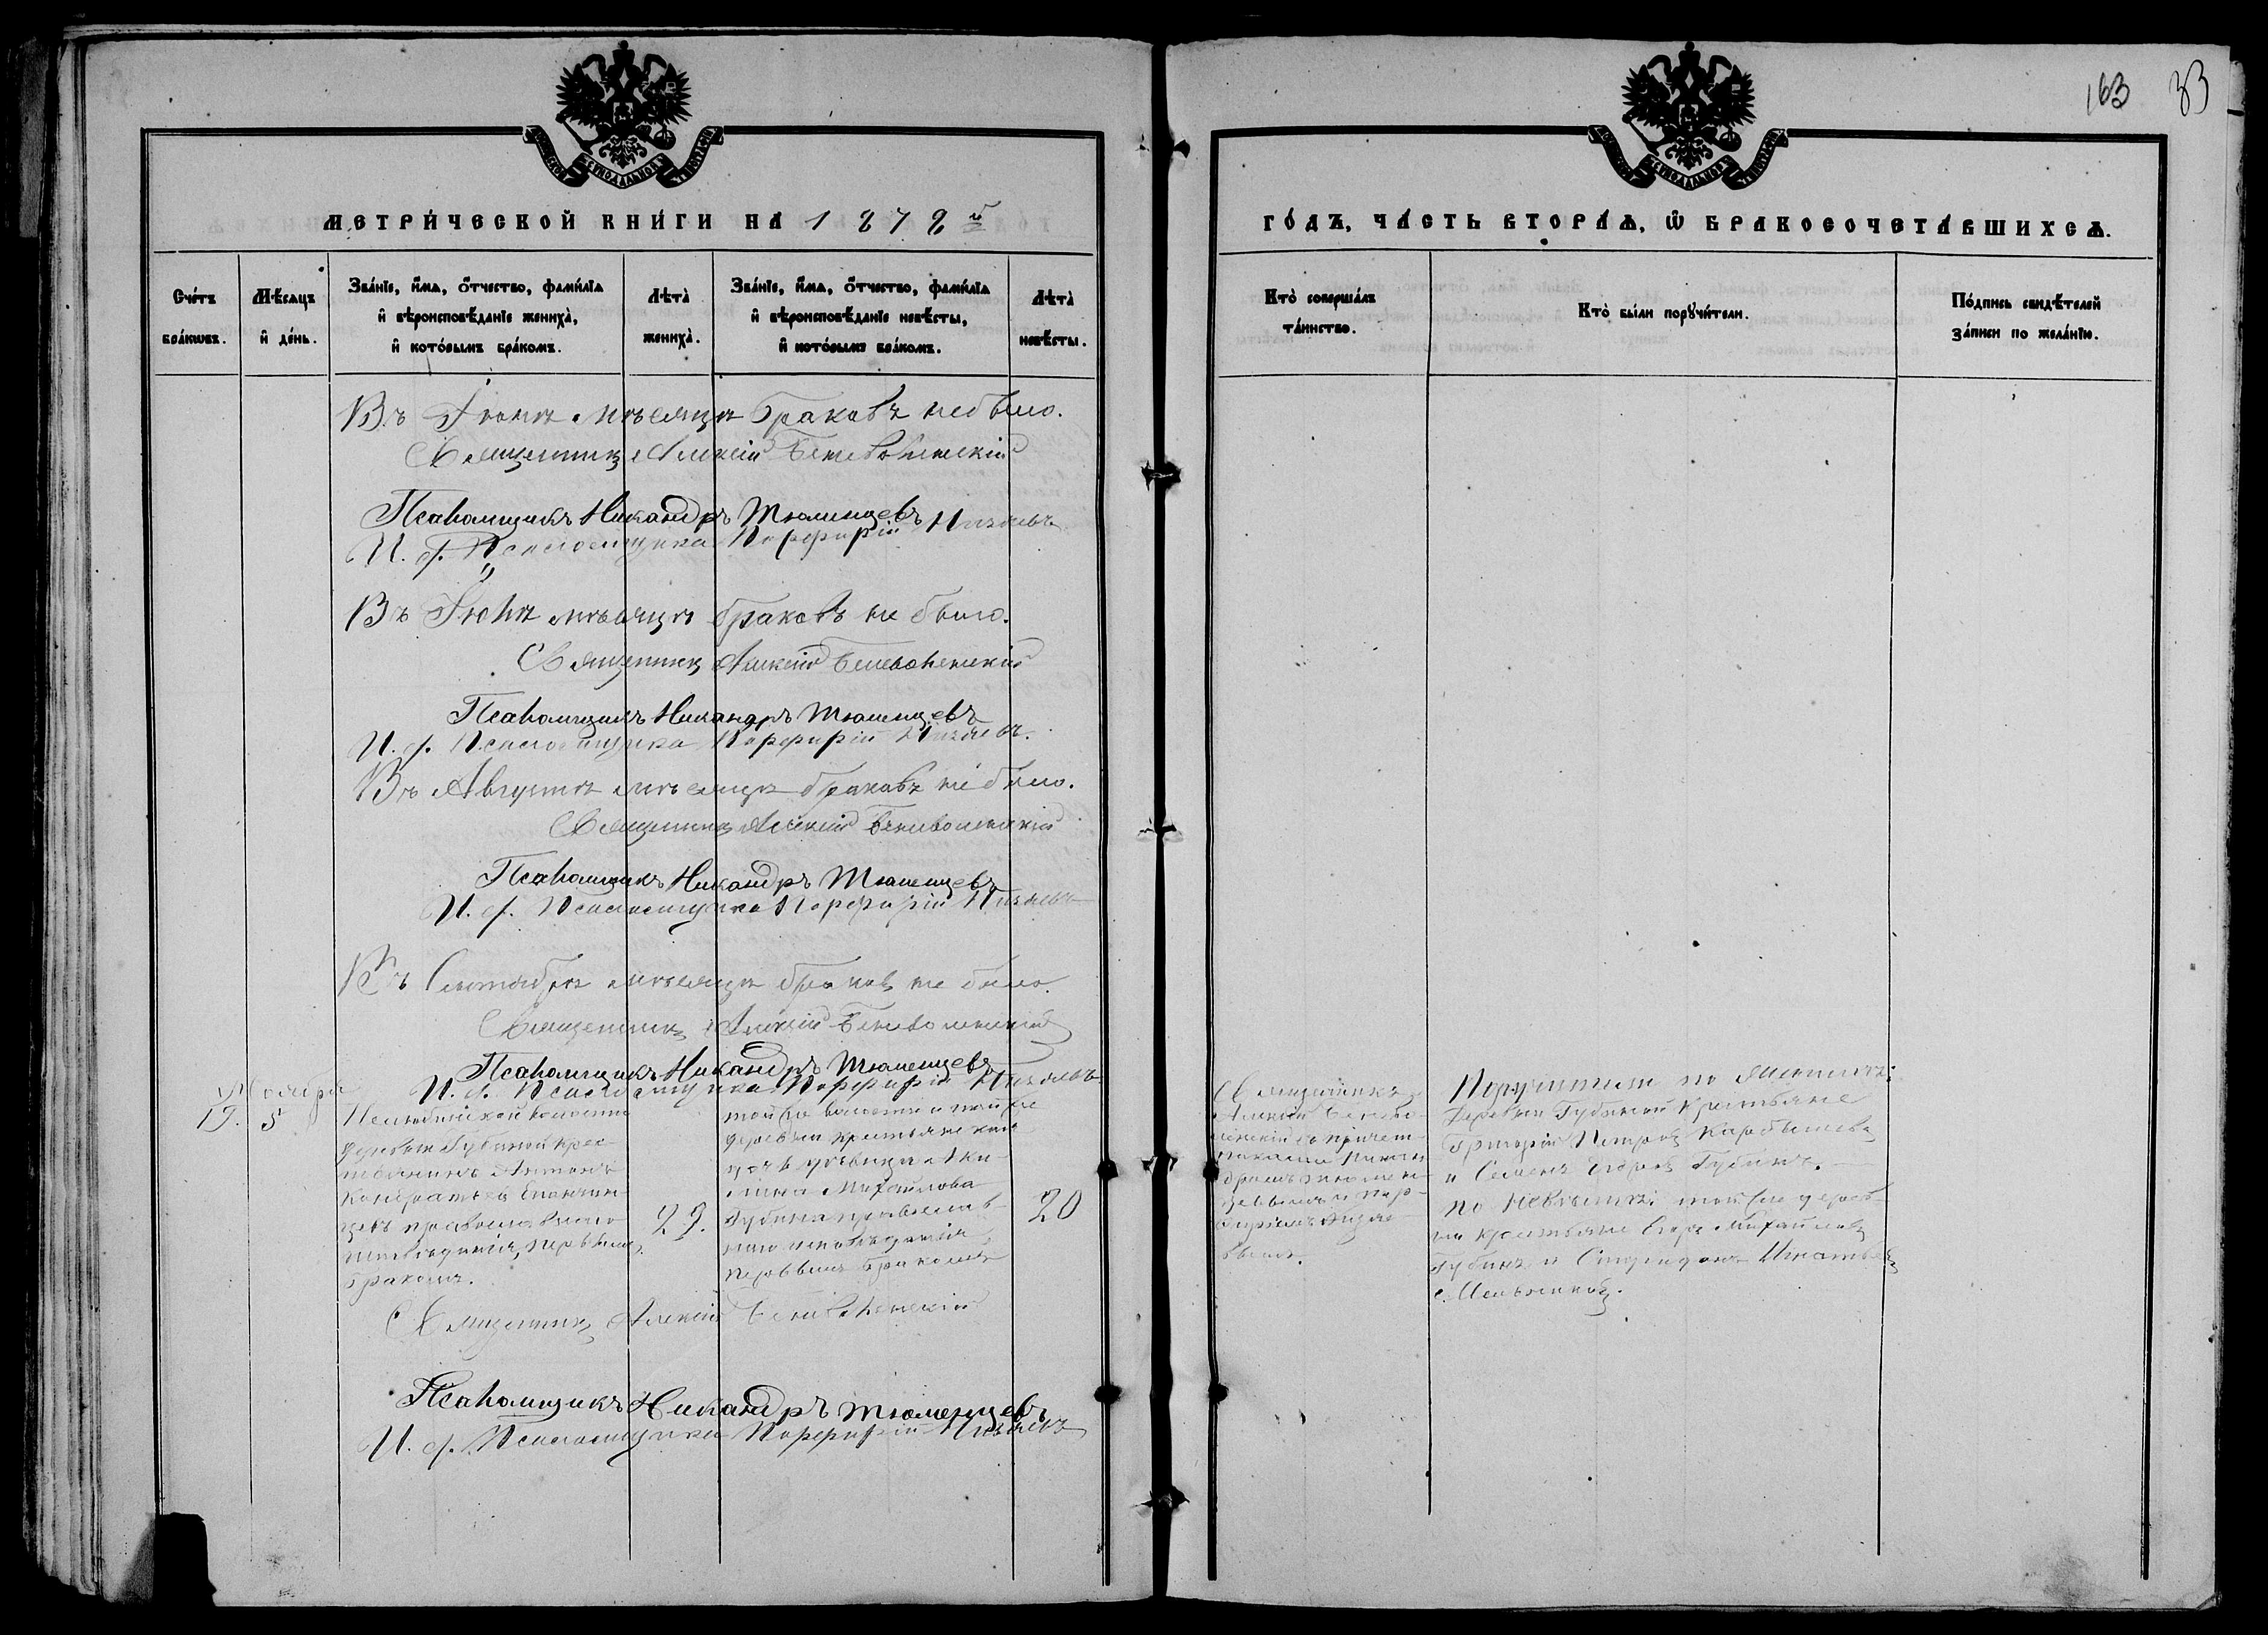 163 33
МЕТРИ́ЧЕСКОЙ КНИ́ГИ НА 1878й
ГО́ДЪ, ЧА́СТЬ ВТОРА́Ѧ, Ѿ БРАКОСОЧЕТА́ВШИХСѦ.
Сче́тъ бра́ковъ.
Мѣ́сяцъ и́ де́нь.
Зва́нїе, и́мѧ, о́тчество, фами́лїѧ и́ вѣроисповѣ́данїе жениха̀, и́ кото́рымъ бра́комъ.
Лѣта̀ жениха̀.
Зва́нїе, и́мѧ, о́тчество, фами́лїѧ и́ вѣроисповѣ́данїе невѣ́сты, и́ кото́рымъ бра́комъ.
Лѣта̀ невѣ́сты.
Кто̀ соверша́лъ та́инство.
Кто̀ бы́ли порꙋчи́тели.
По́дпись свидѣ́телей за́писи по жела́нїю.
Въ Іюнѣ мѣсяцѣ браковъ не было.
Священникъ Алексій Беневоленскій
Псаломщикъ Никандръ Тюменцевъ
И. д. Псаломщика Порфирій
Въ Іюлѣ мѣсяцѣ браковъ не было.
Священникъ Алексій Беневоленскій
Псаломщикъ Никандръ Тюменцевъ
И. д. Псаломщика Порфирій
Въ Августѣ мѣсяцѣ браковъ не было.
Священникъ Алексій Беневоленскій
Псаломщикъ Никандръ Тюменцевъ
И. д. Псаломщика Порфирій
Въ Сентябрѣ мѣсяцѣ браковъ не было.
Священникъ Алексій Беневоленскій
Псаломщикъ Никандръ Тюменцевъ
И. д. Псаломщика Порфирій
Ноября
19. 5
Нелюбинской волости
деревни Губиной крес-
тьянинъ Антонъ
православнаго
исповѣданія, первымъ
бракомъ.
29.
той же волости и той же
деревни крестьянская
дочь дѣвица Аку-
лина Михайлова
Губина православ-
наго исповѣданія,
первымъ бракомъ
20
Священникъ
Алексій Бенево-
ленскій съ причет-
никами Никан-
дромъ Тюмен-
цевымъ и Пор-
фиріемъ
Поручители по женихѣ:
деревни Губиной крестьяне
Григорій Петровъ Карбышевъ
и Семенъ Егоровъ Губинъ.
по невѣстѣ: той же дерев-
ни крестьяне Егоръ Михайловъ
Губинъ и Спиридонъ Игнатьевъ
Мельниковъ.
Священникъ Алексій Беневоленскій
Псаломщикъ Никандръ Тюменцевъ
И. д. Псаломщика Порфирій